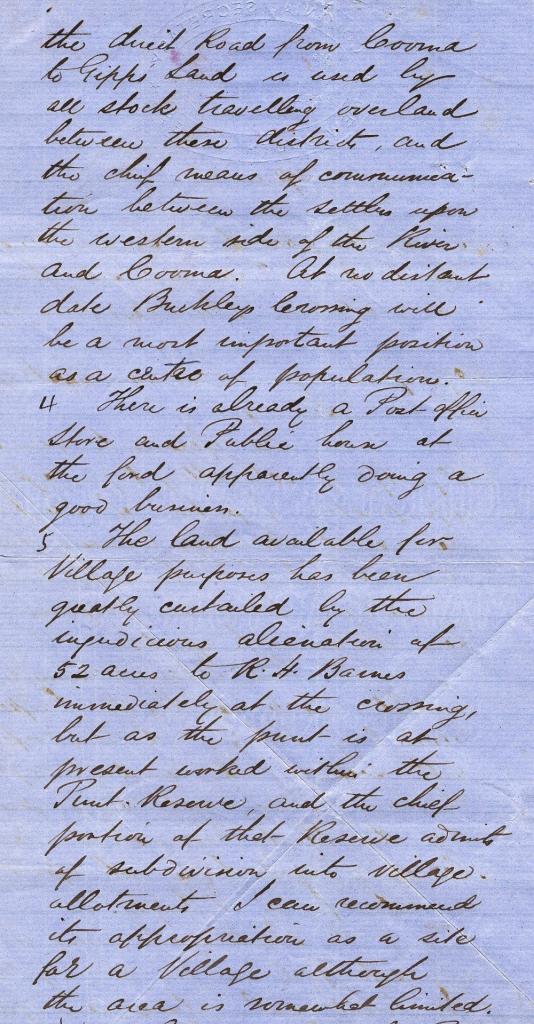 the direct Road from Cooma
to Gipps Land is used by
all stock travelling overland
between these districts, and
the chief means of communica-
tion between the settlers upon
the western side of the River
and Cooma. At no distant
date Buckleys Crossing will
be a most important position
as a centre of population.
4 There is already a Post office
Store and Public house at
the ford apparently doing a
good business.
5 The land available for
Village purposes has been
greatly curtailed by the
injudicious alienation of
52 acres to R. H. Barnes
immediately at the crossing,
but as the punt is at
present worked within the
Punt Reserve, and the chief
portion of that Reserve admits
of subdivision into village
allotments I can recommend
its appropriation as a site
for a Village although
the area is somewhat limited.